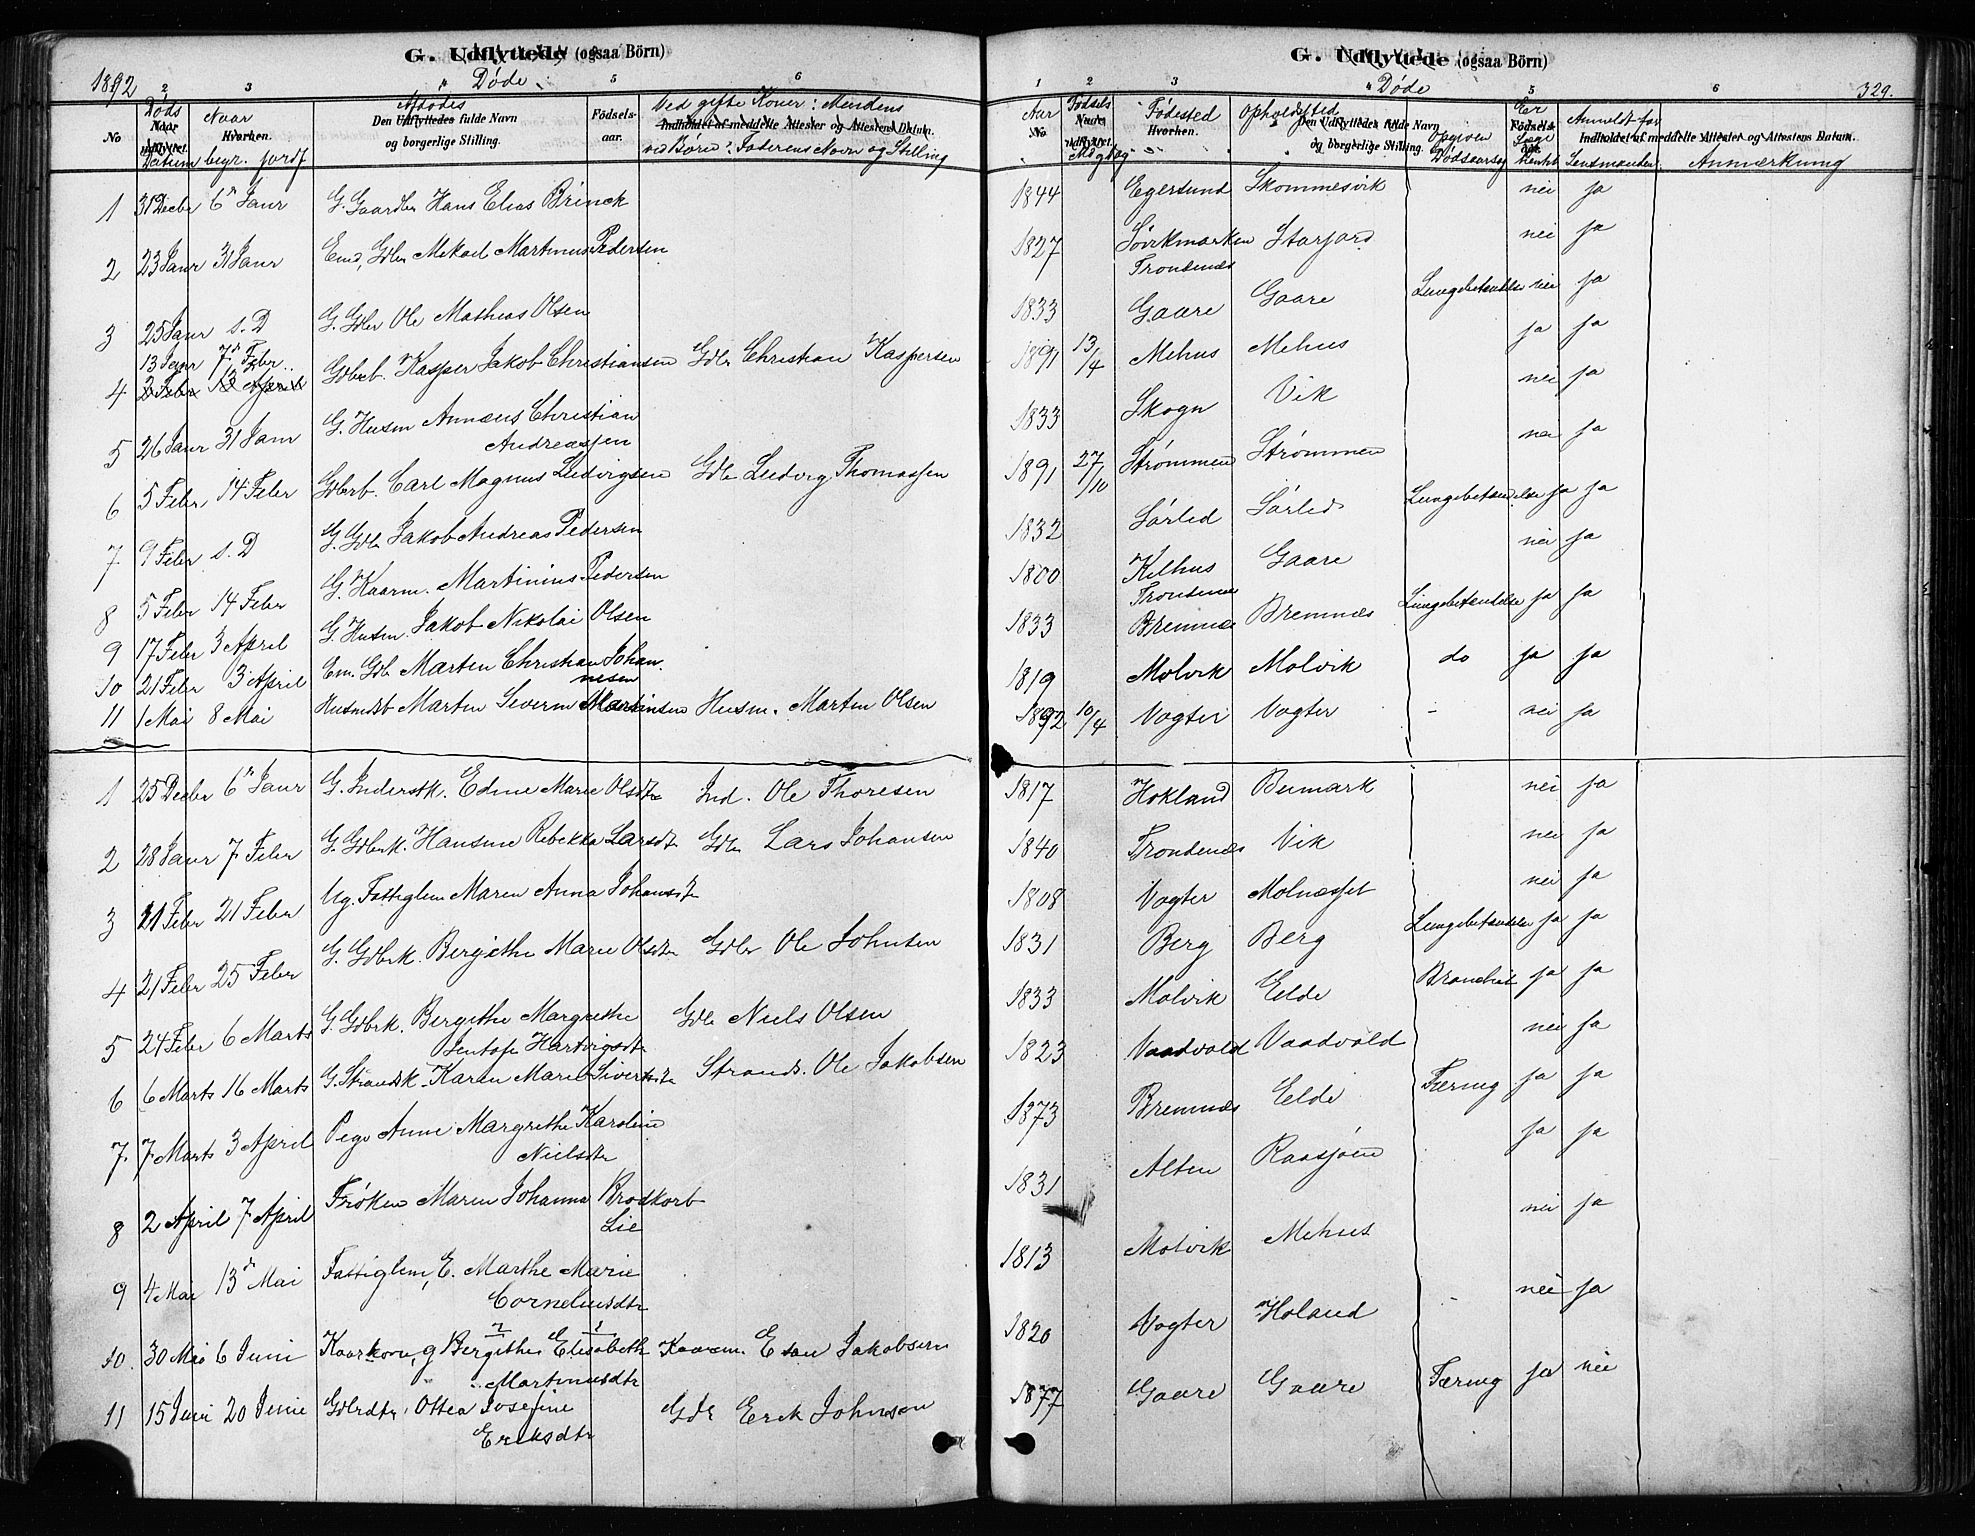 1892
G. Udflyttede (ogsaa Börn)
" Døde
2 3 5 6
No Døds Datum Naar begr. jordf
Afdødes
Den Udflyttedes fulde Navn og borgerlige Stilling.
Fødselsaar.
Ved gifte Koner: Mandens
Indholdet af meddelte Attester og Attestens Datum.
ved Børn: Faderens Navn og Stilling
1 31 Decbr 6te Janr G. Gaardbr Hans Elias Brinck
2 23 Janr 31 Janr Em. Gdbr Mikael Martinus Pedersen
3 25 Janr s. D G. Gdbr Ole Mathias Olsen
13 Janr 7de Febr
4 2 Febr 13 April Gdbrb. Kasper Jakob Christiansen Gdbr Christian Kaspersen
5 26 Janr 31 Janr G. Husm Annæus Christian
Andreassen
6 5 Febr 14 Febr Gdbrb. Carl Magnus Ludvigsen Gdbr Ludvig Thomassen
7 9 Febr s. D G. Gdbr Jakob Andreas Pedersen
8 5 Febr 14 Febr G. Kaarm. Martinius Pedersen
9 17 Febr 3 April G. Husm. Jakob Nikolai Olsen
10 21 Febr 3 April Em. Gdb Marten Christian Johan
nesen
11 1 Mai 8 Mai Husmdsb Marten Severin Martinsen Husm. Marten Olsen
1 25 Decbr 6te Janr G. Inderstk. Edine Marie Olsdtr Ind. Ole Thoresen
2 28 Janr 7 Febr G. Gdbrk. Hansine Rebekka Larsdtr Gdbr Lars Johansen
3 21 Febr 21 Febr Ug. Fattiglem Maren Anna Johansdtr
4 21 Febr 25 Febr G. Gdbrk. Bergithe Marie Olsdtr Gdbr Ole Johnsen
5 24 Febr 6 Marts G. Gdbrk. Bergithe Margrethe Gdbr Niels Olsen
Bentofa Hartvigsdtr
6 6 Marts 16 Marts G. Strandsk. Karen Marie Sivertsdtr Strands. Ole Jakobsen
7 7 Marts 3 April Pige Anne Margrethe Karoline
Nielsdtr
8 2 April 7 April Frøken Maren Johanna Brodkorb
Lie
9 4 Mai 13de Mai Fattiglem, E. Marthe Marie
Corneliusdtr
10. 30 Mai 6 Juni Kaarkone, g Bergithe Elisabeth Kaarm. Esau Jakobsen
Martinusdtr
11 15 Juni 20 Junie Gdbrdtr. Ottea Josefine Gdr Erik Johnsen
Eriksdtr
G. Udflyttede (ogsaa Börn)
" Døde
329.
1 2 3 5 6
Aar No Fødsels Aar Udflyttet. Mdg Dag Fødested Hvorhen. Opholdssted
Den Udflyttedes fulde Navn og borgerlige Stilling.
Opgiven Dødsaarsag Er Læge hentet Anmeldt for Lensmanden
Indholdet af meddelte Attester og Attestens Datum.
Anmærkning
1844 Egersund Skommesvik nei ja
1827 Sørkmarken Storjord nei ja
Trondenæs
1833 Gaare Gaare Lungebetændelse nei ja
1891 13/4 Mehus Mehus ja ja
1833 Skogn Vik nei ja
1891 27/10 Strømmen Strømmen nei ja
1832 Sørlid Sørlid Lungebetændelse ja ja
1800 Kilhus Gaare nei ja
Trondenæs
1833 Bremnæs Bremnæs Lungebetændelse ja ja
1819 Molvik Molvik do ja ja
1892 10/4 Vogter Vogter - nei ja
1817 Hokland Bumark nei ja
1840 Trondenæs Vik nei ja
1808 Vogter Molnæsset nei ja
1831 Berg Berg Lungebetændelse ja ja
1833 Molvik Eelde ja ja
1823 Vaadvold Vaadvold nei ja
1873 Bremnæs Eelde Tæring ja ja
1831 Alten Raasjøen ja ja
1813 Molvik Mehus nei ja
1820 Vogter Holand nei ja
1877 Gaare Gaare Tæring ja nei